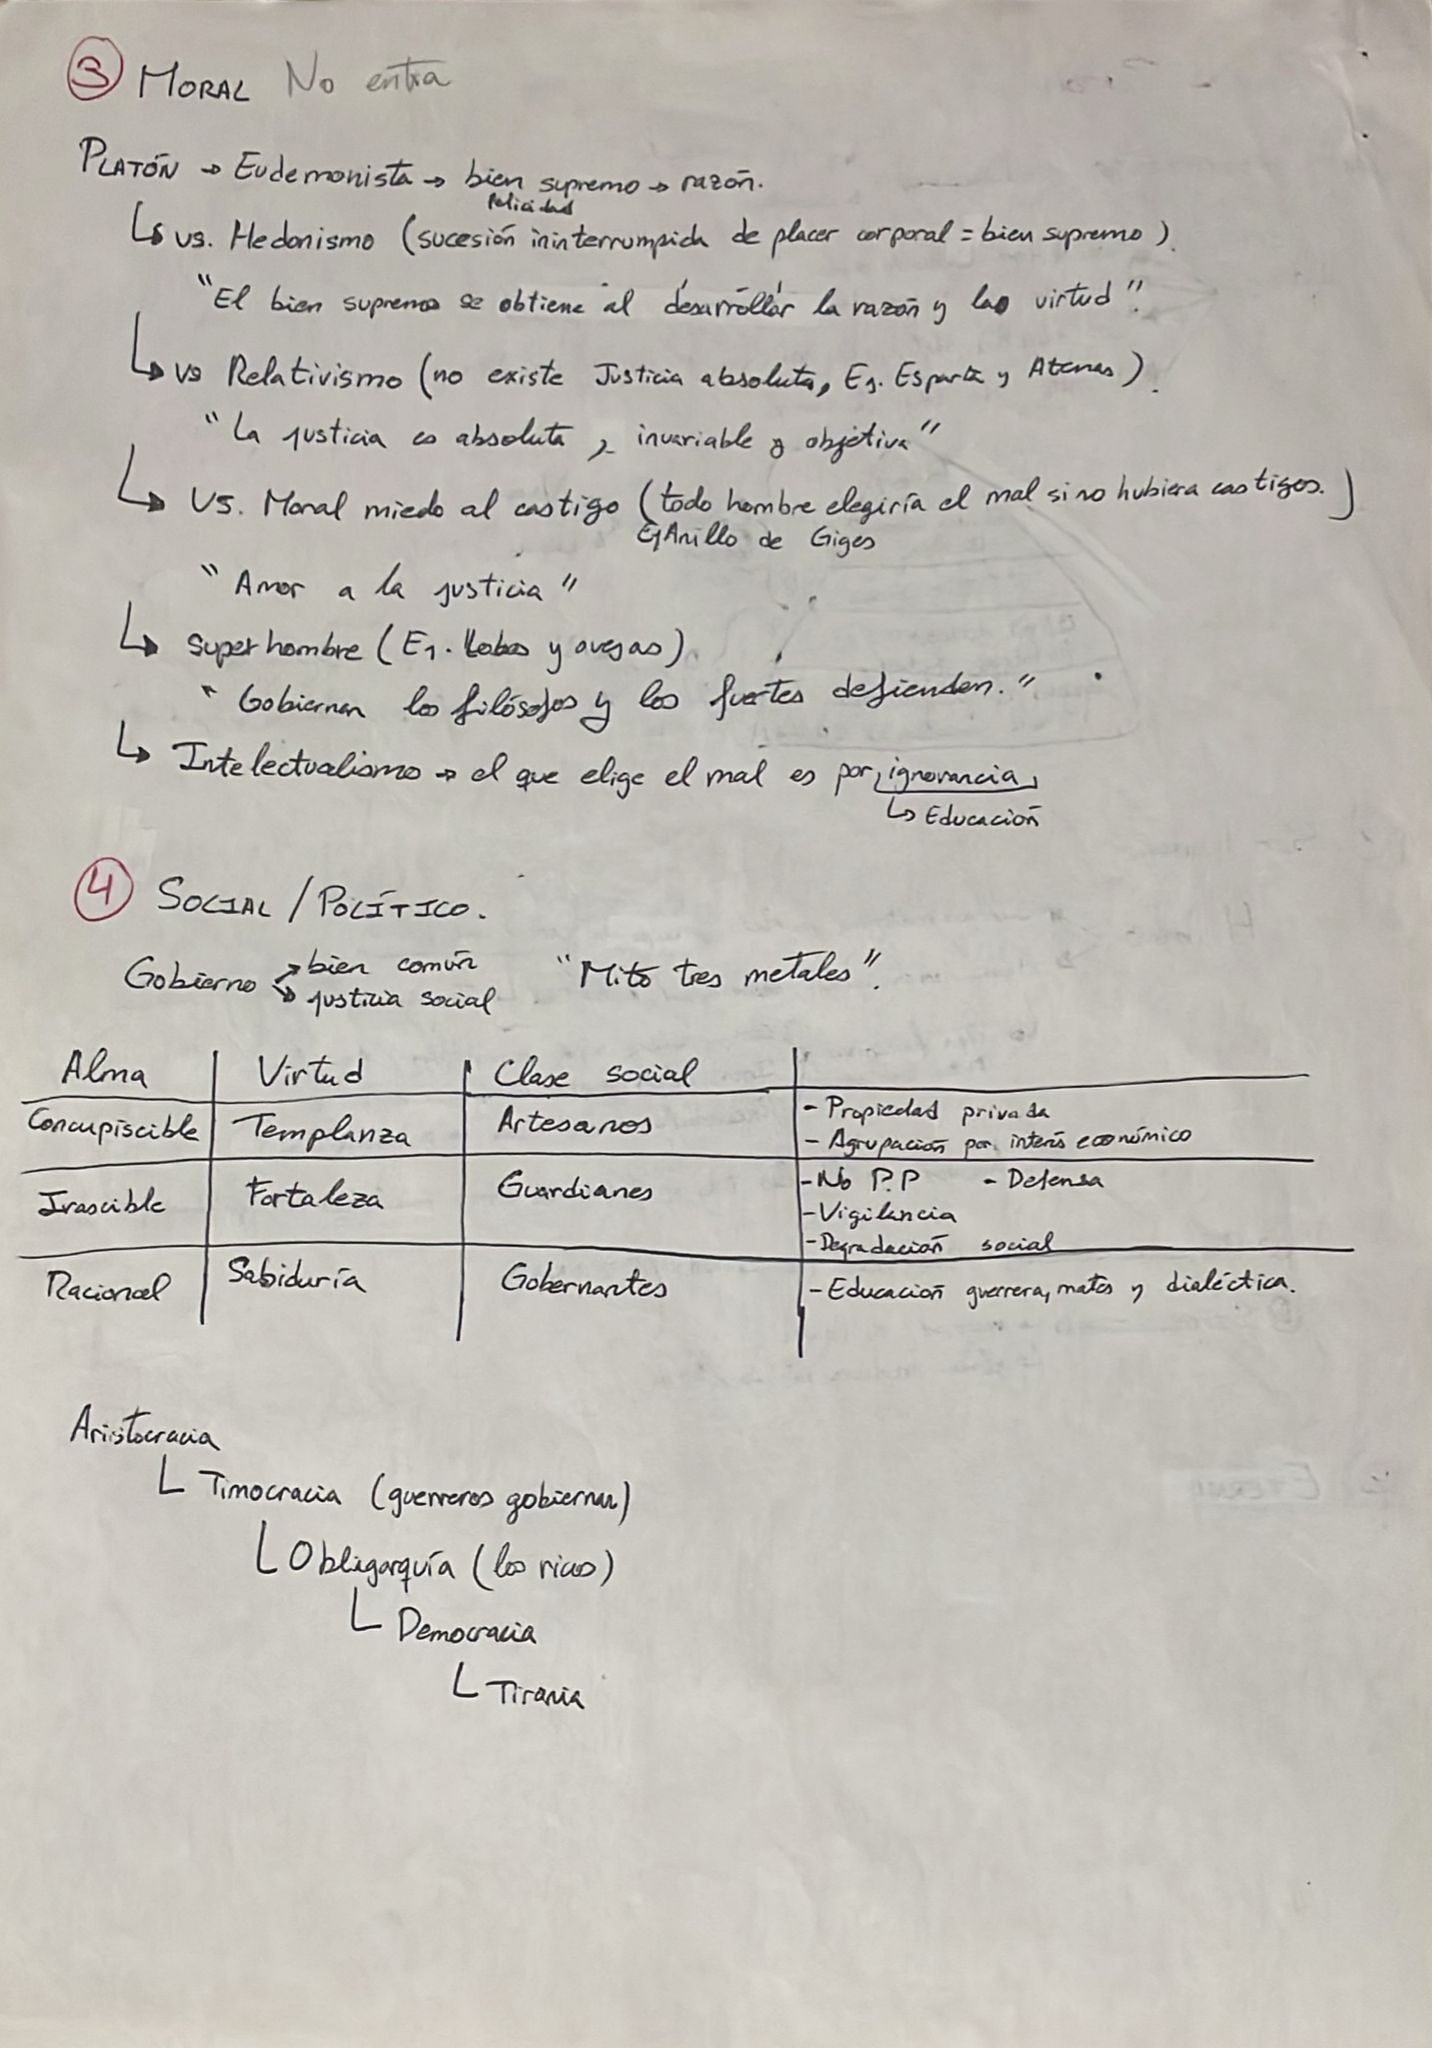 3 MORAL No entra
PLATÓN → Eudemonista → bien supremo → razón.
felicidad
↳ vs. Hedonismo (sucesión ininterrumpida de placer corporal = bien supremo).
"El bien supremo se obtiene al desarrollar la razón y la virtud".
↳ vs Relativismo (no existe Justicia absoluta, Ej. Esparta y Atenas).
"La justicia es absoluta, invariable y objetiva"
↳ VS. Moral miedo al castigo (todo hombre elegiría el mal si no hubiera castigos.)
Ej Anillo de Giges
"Amor a la justicia"
↳ Superhombre (Ej. Lobos y ovejas)
"Gobiernan los filósofos y los fuertes defienden."
↳ Intelectualismo → el que elige el mal es por ignorancia
↳ Educación
4 SOCIAL / POLÍTICO.
Gobierno ↗ bien común "Mito tres metales".
↘ justicia social
Alma Virtud Clase social
Concupiscible Templanza Artesanos - Propiedad privada
- Agrupación por interés económico
Irascible Fortaleza Guardianes - No P.P - Defensa
- Vigilancia
- Degradación social
Racional Sabiduría Gobernantes - Educación guerrera, mates y dialéctica.
Aristocracia
└ Timocracia (guerreros gobiernan)
└ Obligarquía (los ricos)
└ Democracia
└ Tirania